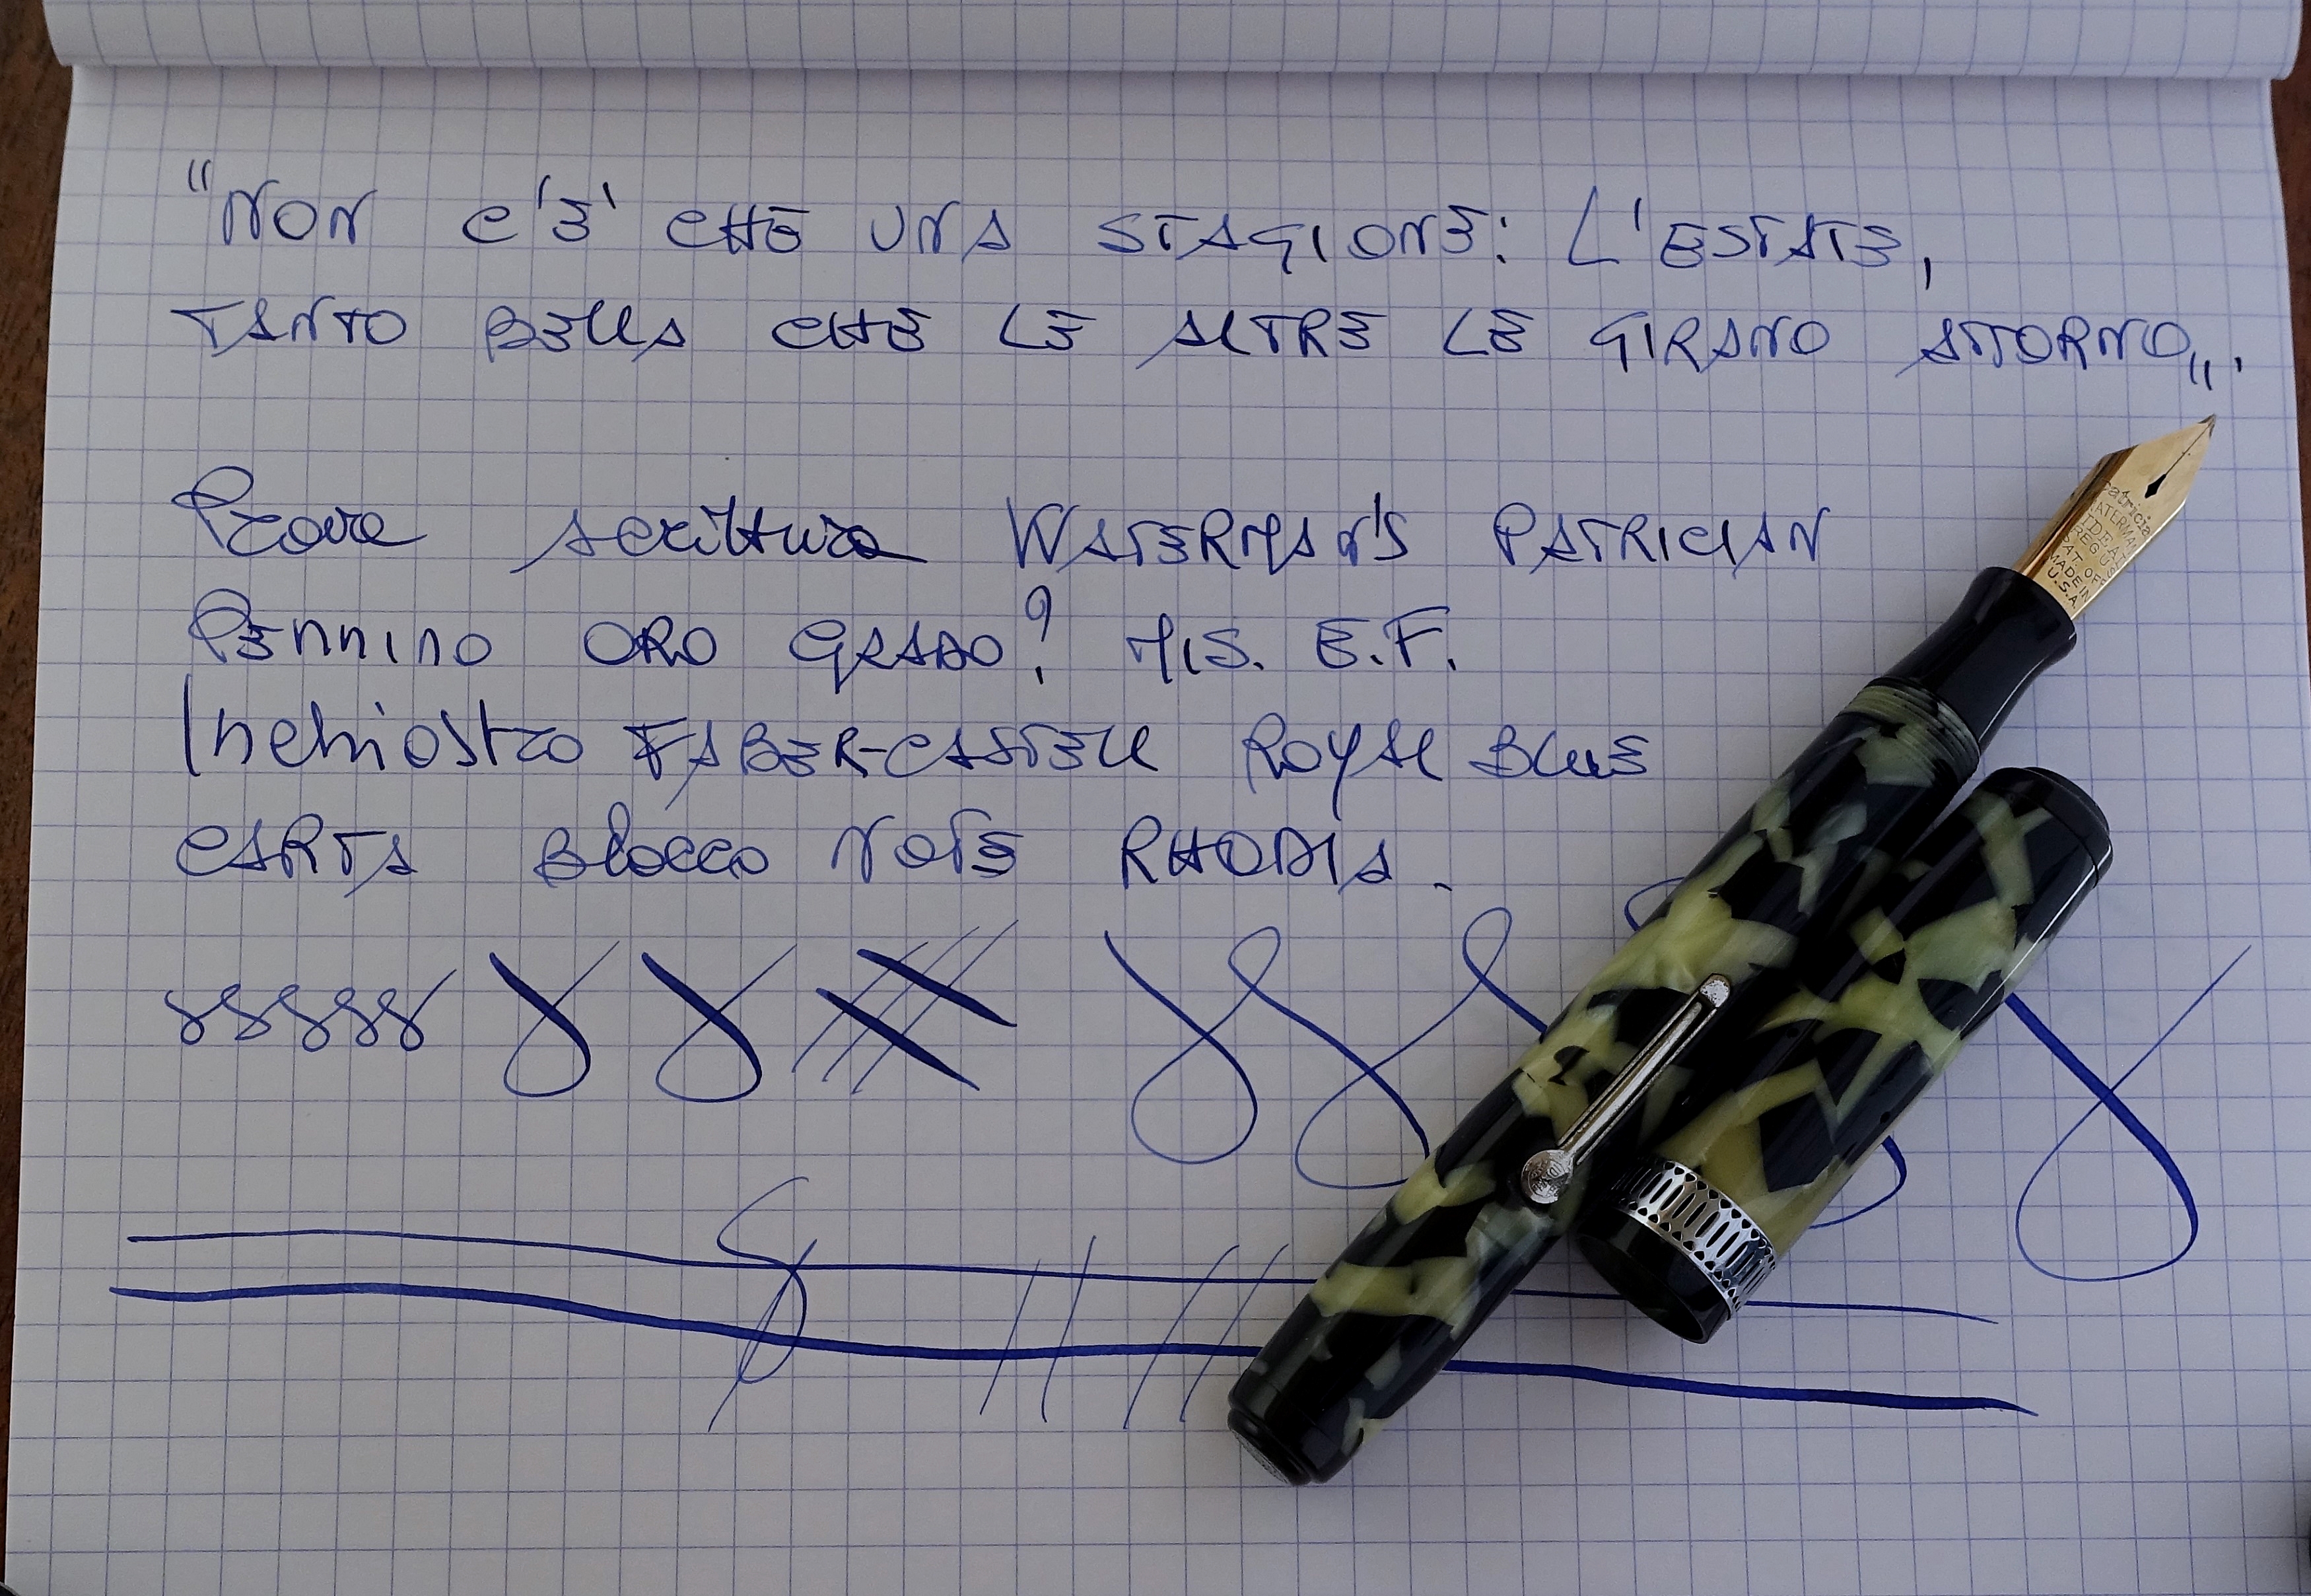 "NON C'E' CHE UNA STAGIONE: L'ESTATE,
TANTO BELLA CHE LE ALTRE LE GIRANO ATTORNO„.
Prova scrittura WATERMAN'S PATRICIAN
Pennino ORO GRADO? MIS. E.F.
Inchiostro FABER-CASTELL ROYAL BLUE
CARTA Blocco NOTE RHODIA.
Patricia
WATERMAN
IDEAL
REG US
PAT. OF
MADE IN
U.S.A.